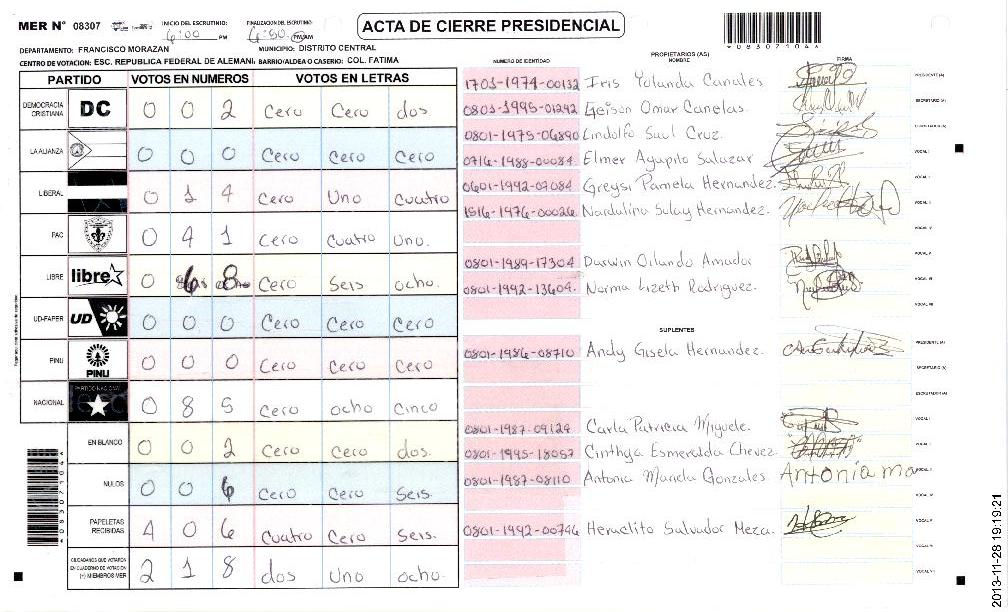 MER Nº 08307 INICIO DEL ESCRUTINIO: 6:00 PM FINALIZACION DEL ESCRUTINIO: 6:50 PM/AM
ACTA DE CIERRE PRESIDENCIAL
*08307104*
DEPARTAMENTO: FRANCISCO MORAZAN MUNICIPIO: DISTRITO CENTRAL
CENTRO DE VOTACION: ESC. REPUBLICA FEDERAL DE ALEMANI BARRIO/ALDEA O CASERIO: COL. FATIMA
PARTIDO VOTOS EN NUMEROS VOTOS EN LETRAS
DEMOCRACIA CRISTIANA DC 0 0 2 Cero Cero dos
LA ALIANZA 0 0 0 Cero Cero Cero
LIBERAL 0 1 4 Cero Uno cuatro
PAC 0 4 1 Cero Cuatro Uno.
LIBRE libre 0 6 8 Cero Seis ocho.
UD-FAPER UD 0 0 0 Cero Cero Cero
PINU PINU 0 0 0 Cero Cero Cero
NACIONAL PARTIDO NACIONAL 0 8 5 Cero ocho Cinco
EN BLANCO 0 0 2 Cero Cero dos.
NULOS 0 0 6 Cero Cero Seis.
PAPELETAS RECIBIDAS 4 0 6 Cuatro Cero Seis.
CIUDADANOS QUE VOTARON EN CUADERNO DE VOTACION (+) MIEMBROS MER 2 1 8 dos Uno ocho.
NUMERO DE IDENTIDAD PROPIETARIOS (AS) NOMBRE FIRMA
1703-1974-00132 Iris Yolanda Canales PRESIDENTE (A)
0803-1995-01292 Geison Omar Canelas. SECRETARIO (A)
0801-1975-06890 Lindolfo Saul Cruz. ESCRUTADOR (A)
0716-1988-00084 Elmer Agapito Salazar VOCAL I
0601-1992-02084 Greysi Pamela Hernandez. VOCAL II
1516-1976-00026 Nardalina Sulay Hernandez.
VOCAL V
0801-1989-17304 Darwin Orlando Amador
0801-1992-13604. Norma Lizeth Rodriguez.
SUPLENTES
0801-1986-08710 Andy Gisela Hernandez. PRESIDENTE (A)
SECRETARIO (A)
ESCRUTADOR (A)
0801-1987-09129 Carla Patricia Miguele. VOCAL I
0801-1995-18057 Cinthya Esmeralda Chevez.
0801-1987-08110 Antonia Mariela Gonzales Antonia Ma
0801-1992-00746 Heraclito Salvador Meza.
2013-11-28 19:19:21